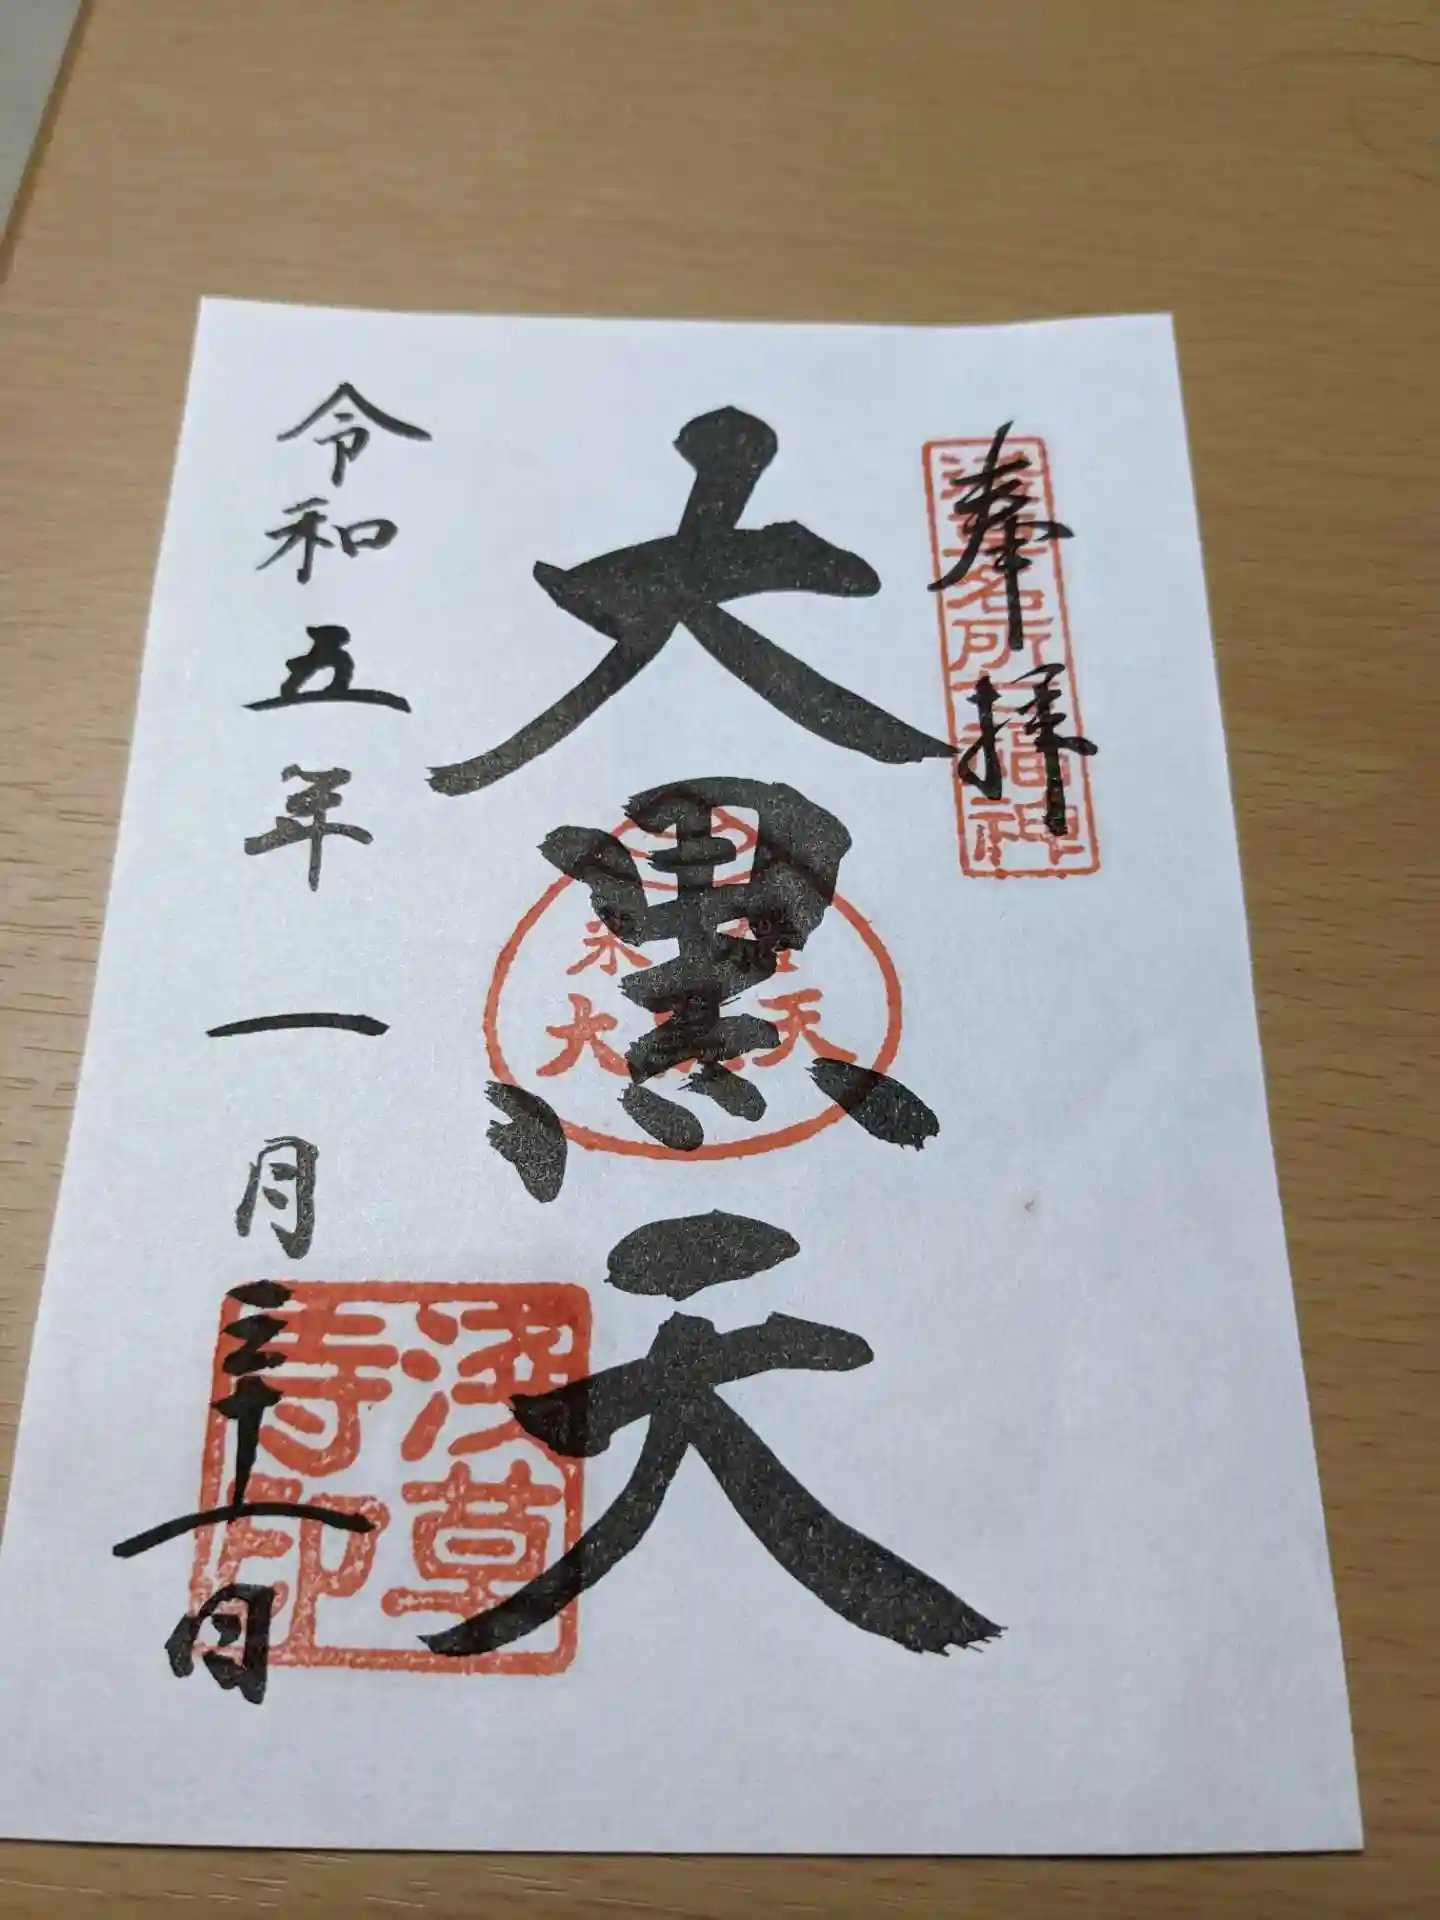 奉拝
浅草名所七福神
大黒天
米櫃
大黒天
令和五年一月三十一日
浅草
寺印